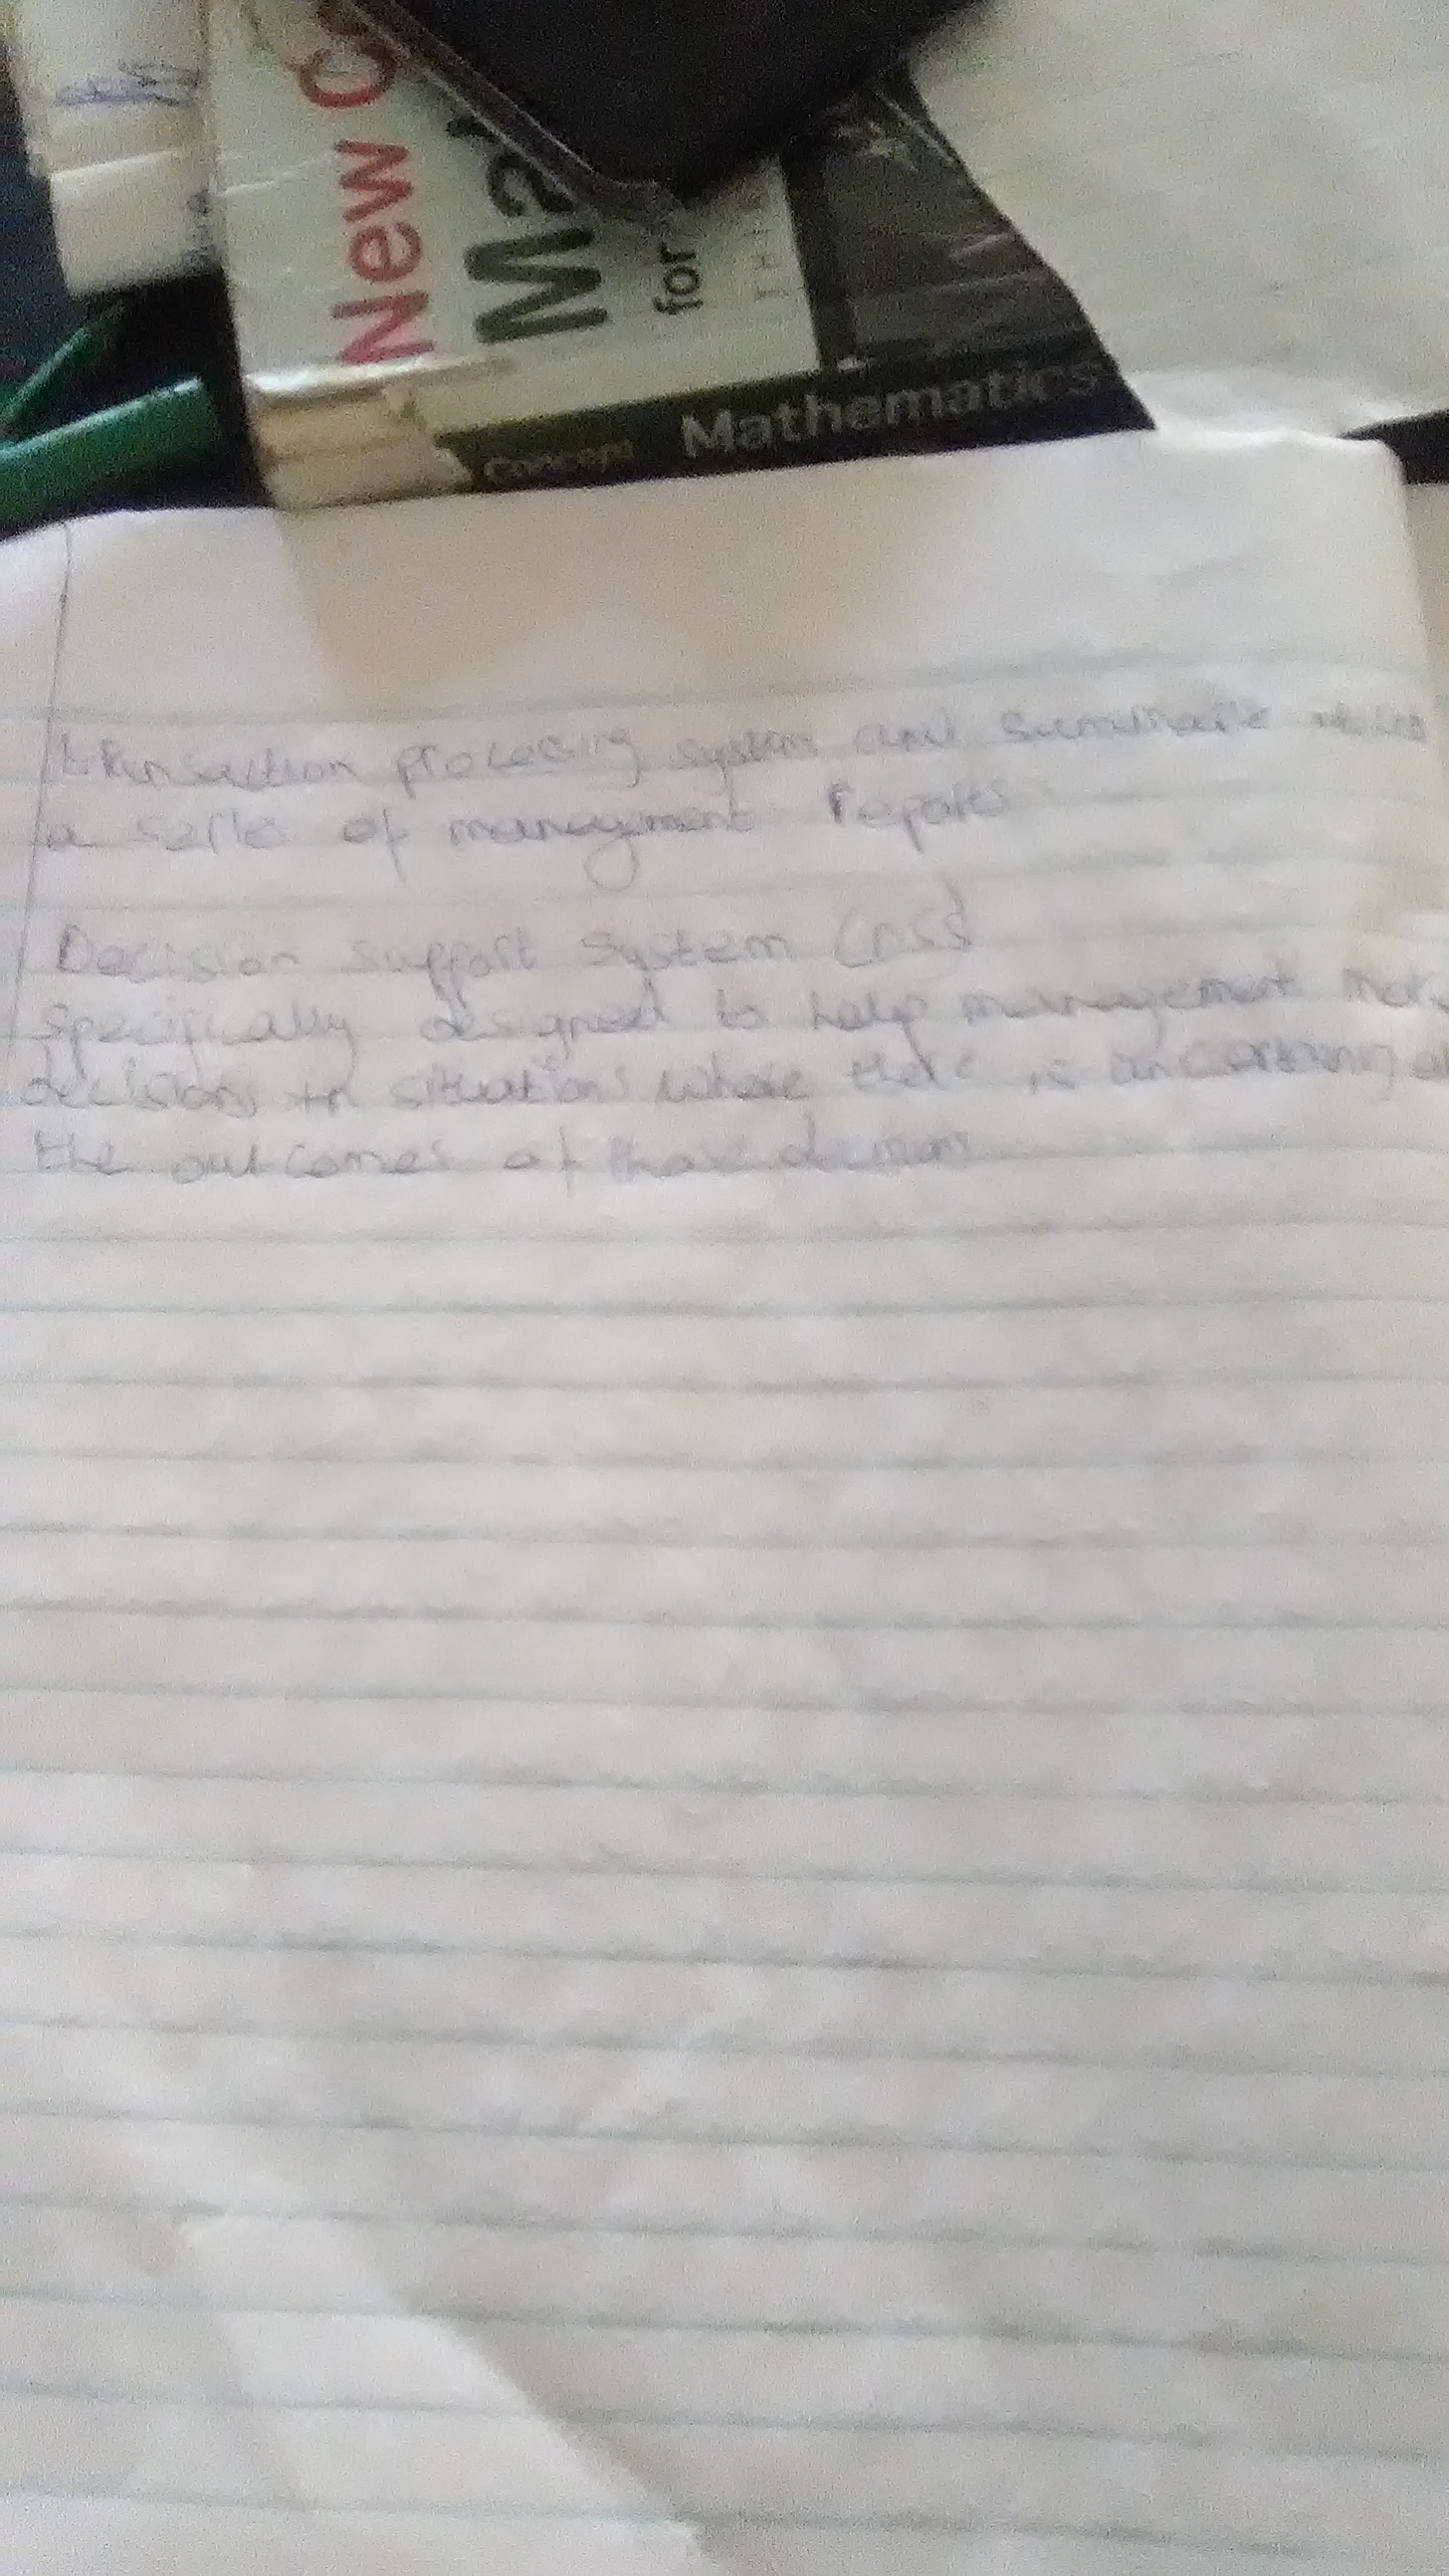 New
Ma
for
concept Mathematics
transaction processing system and summarie
a serie of management reports
Decision support System (DSS)
specifically designed to help management make
decisions in situations where there is uncertainty
the outcomes of those decisions